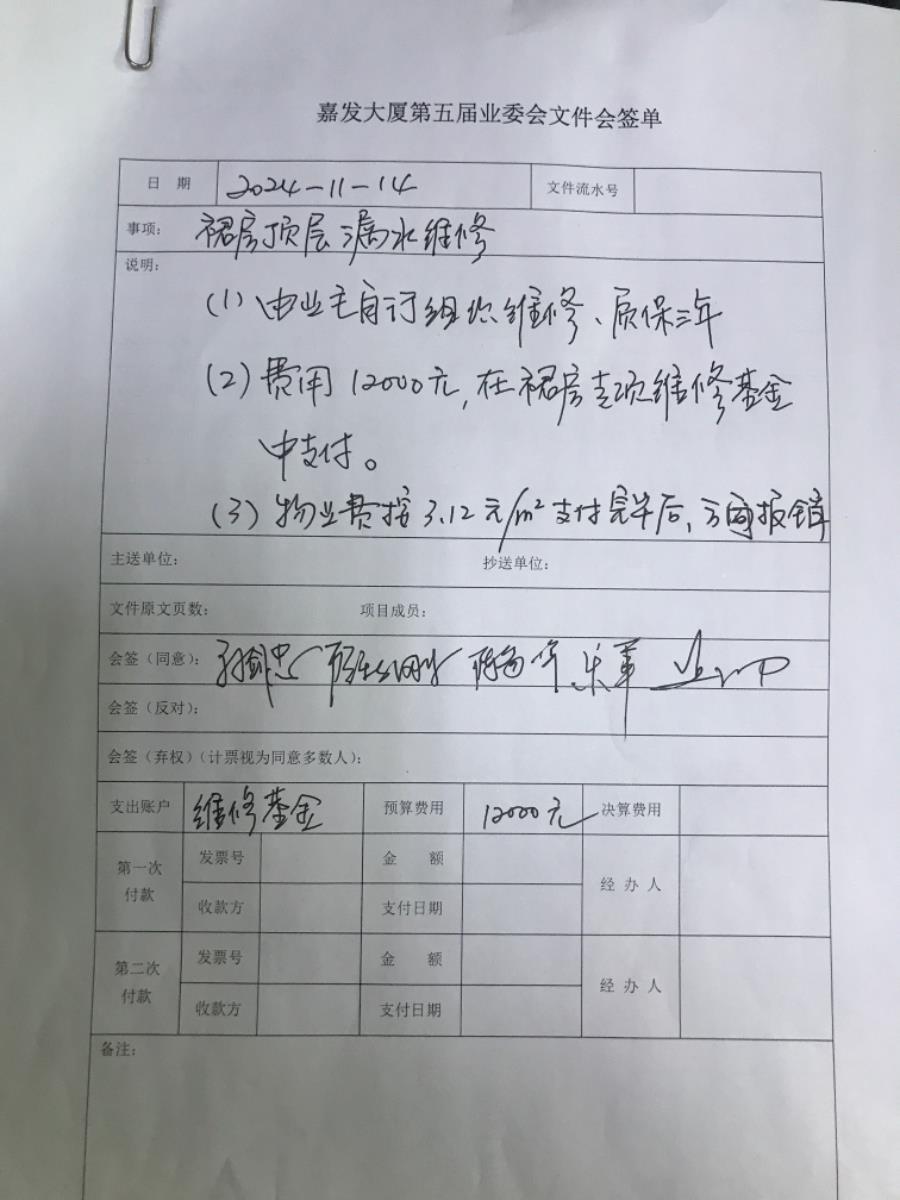 嘉发大厦第五届业委会文件会签单
日 期 2024-11-14 文件流水号
事项： 裙房顶层漏水维修
说明：
(1) 由业主自行组织维修、质保三年
(2) 费用12000元,在裙房专项维修基金
中支付。
(3) 物业费按3.12元/m²支付完毕后,方可报销
主送单位： 抄送单位：
文件原文页数： 项目成员：
会签（同意）：
会签（反对）：
会签（弃权）（计票视为同意多数人）：
支出账户 维修基金 预算费用 12000元 决算费用
第一次付款 发票号 金 额 经 办 人
收款方 支付日期
第二次付款 发票号 金 额 经 办 人
收款方 支付日期
备注：